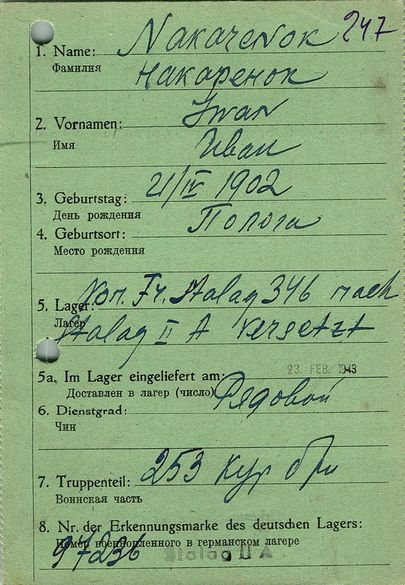 247
1. Name: Nakarenok
Фамилия Накаренок
2. Vornamen: Iwan
Имя Иван
3. Geburtstag: 21/IV 1902
День рождения
4. Geburtsort: Полога
Место рождения
5. Lager: Kom. Fr. Stalag 346 nach
Лагерь Stalag II A versetzt
5a, Im Lager eingeliefert am: 23. FEB. 1943
Доставлен в лагер (число)
6. Dienstgrad: Рядовой
Чин
7. Truppenteil: 253
Воинская часть
8. Nr. der Erkennungsmarke des deutschen Lagers:
Номер военнопленного в германском лагере
97236 Stalag II A